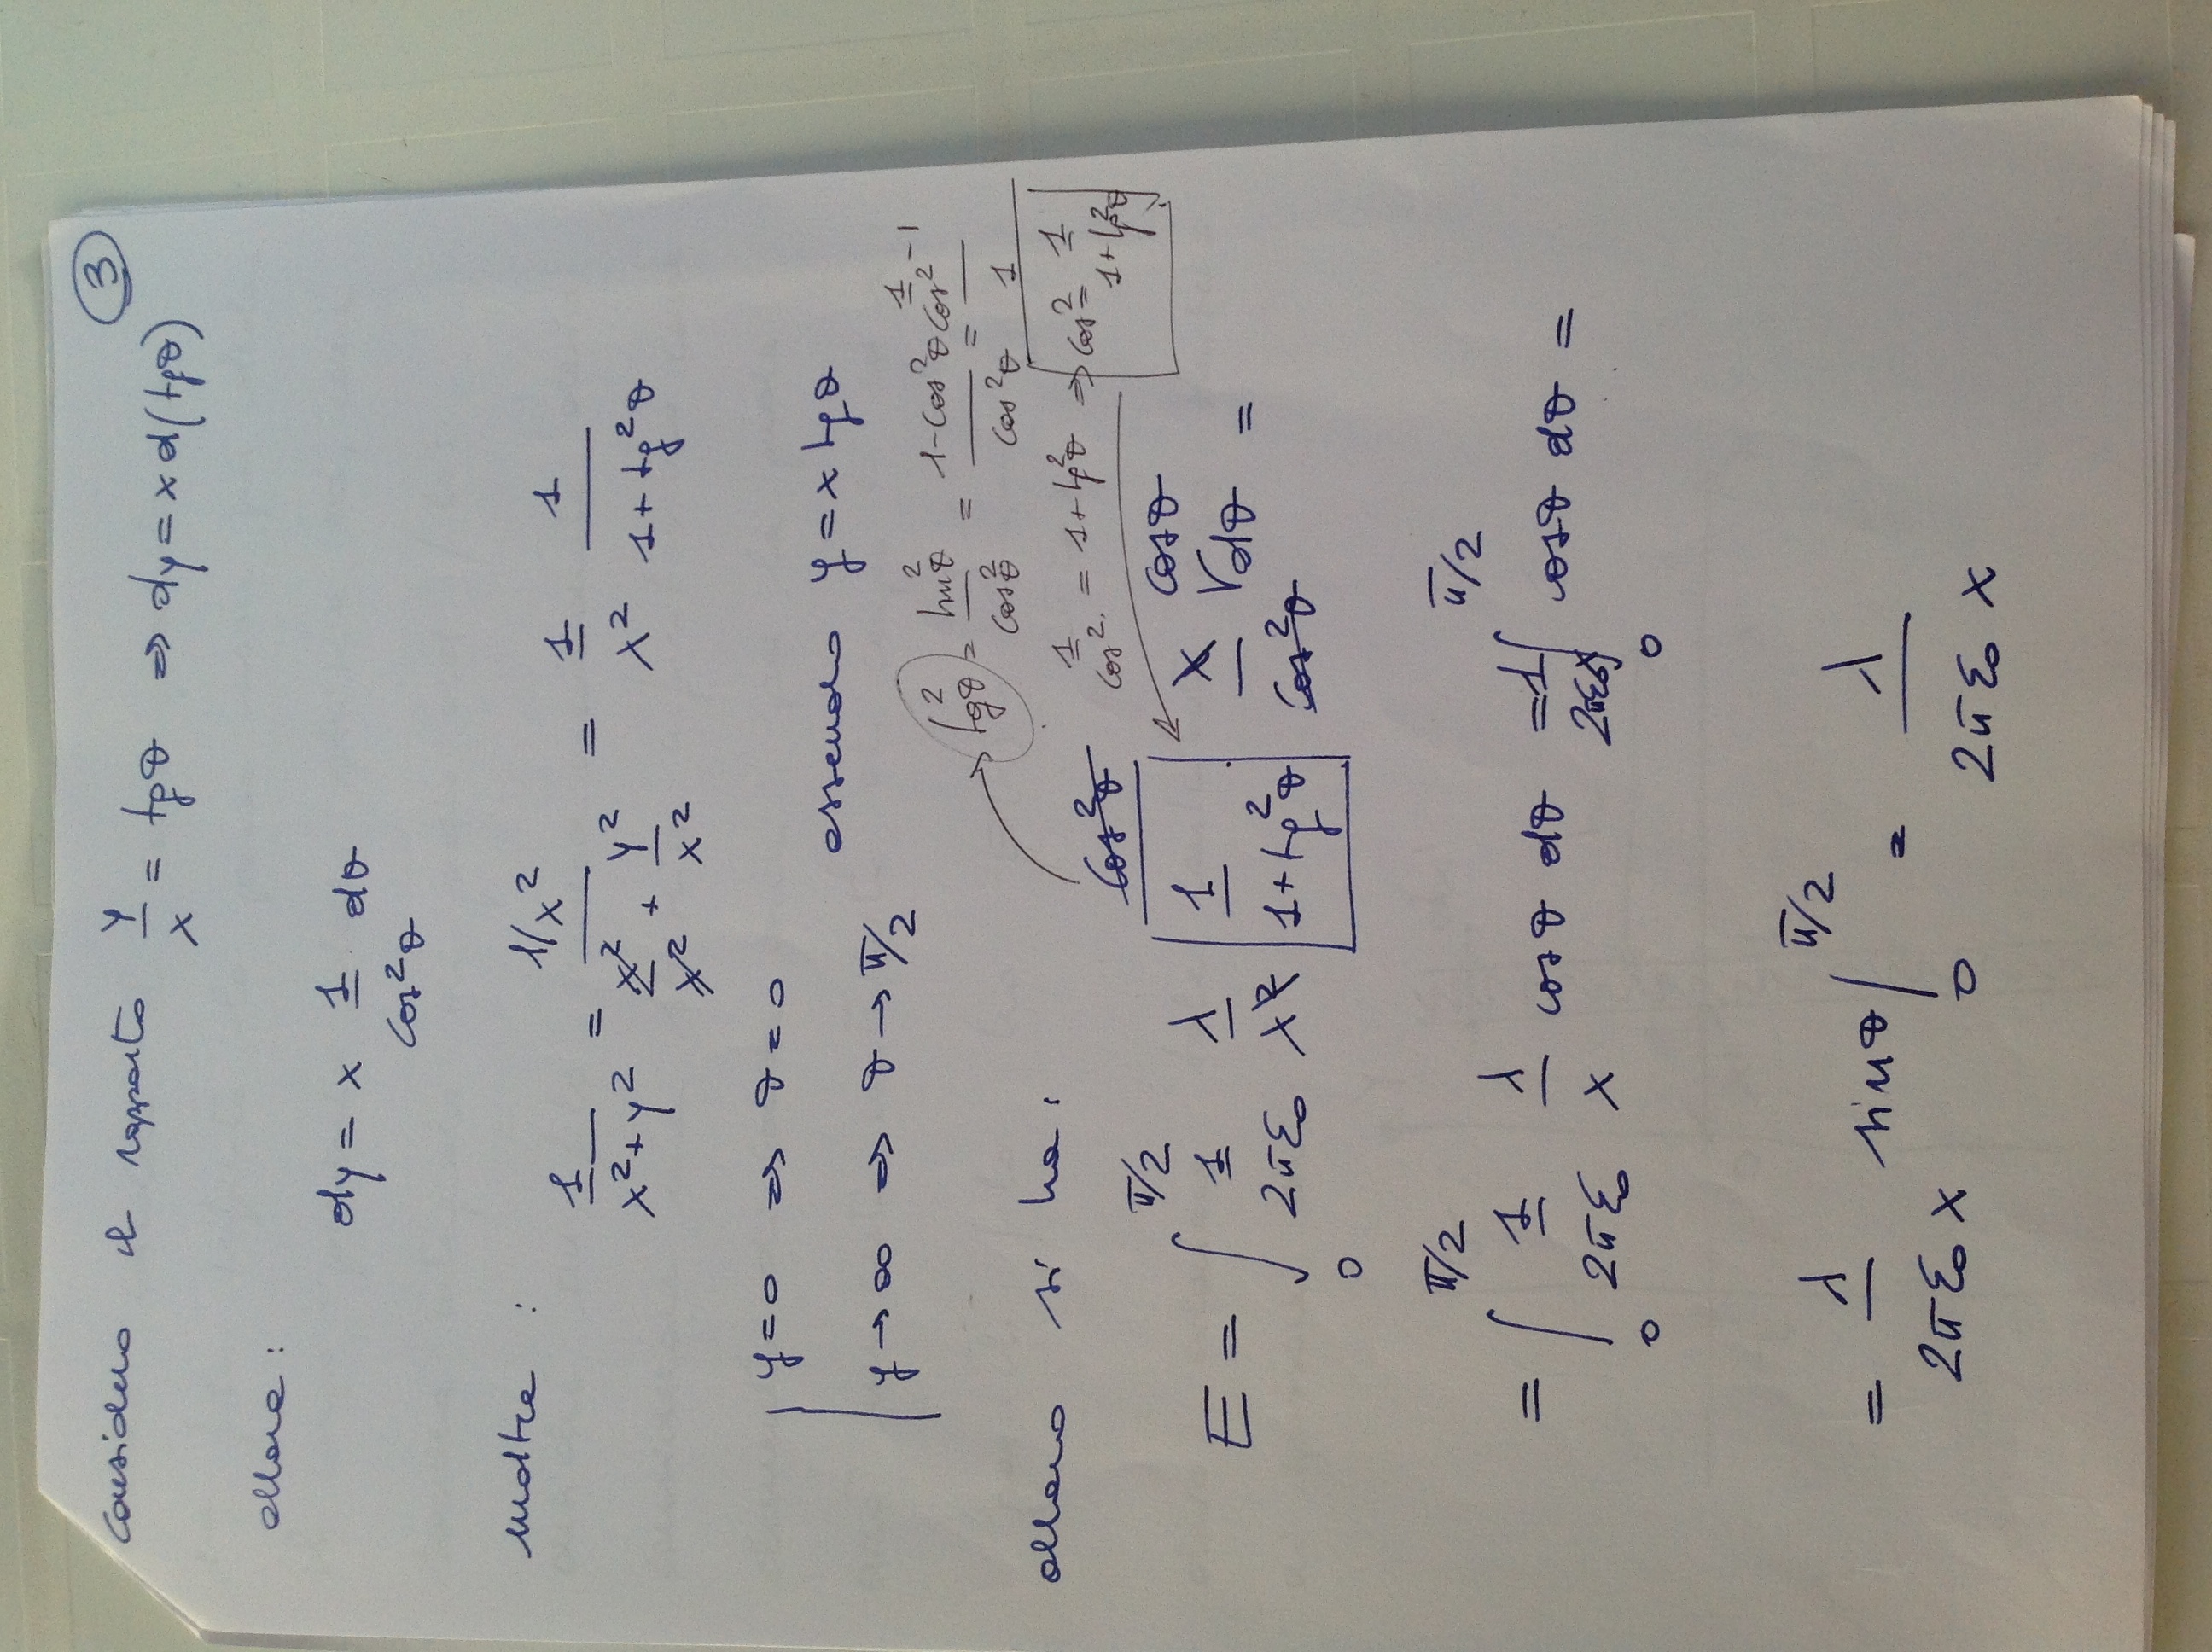 3
Considero il rapporto y/x = tgθ ⇒ dy = x d(tgθ)
allora :
dy = x 1/cos²θ dθ
inoltre :
1/(x²+y²) = (1/x²)/(x²/x² + y²/x²) = 1/x² 1/(1+tg²θ)
y=0 ⇒ θ=0
essendo y = x tgθ
y→∞ ⇒ θ→π/2
tg²θ = sin²θ/cos²θ = (1-cos²θ)/cos²θ = (1/cos² -1)/1
allora si ha:
1/cos² = 1+tg²θ ⇒ cos² = 1/(1+tg²θ)
cos²θ
E = ∫₀^(π/2) 1/(2πε₀) λ/x² 1/(1+tg²θ) x/cos²θ cosθ dθ =
= ∫₀^(π/2) 1/(2πε₀) λ/x cosθ dθ = 1/(2πε₀x) ∫₀^(π/2) cosθ dθ =
= λ/(2πε₀ x) sinθ |₀^(π/2) = λ/(2πε₀ x)